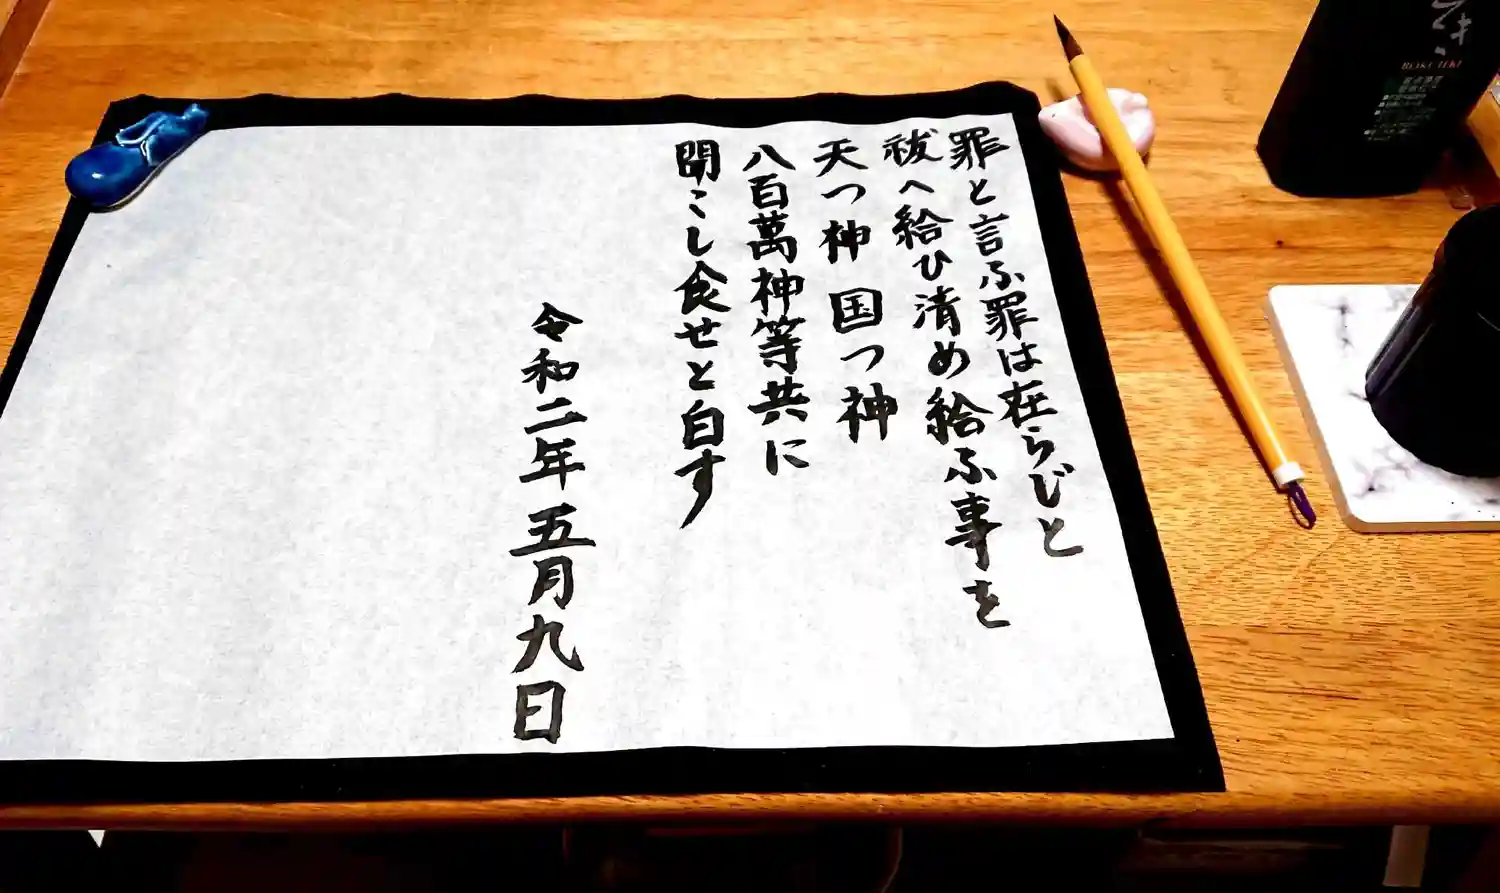 罪と言ふ罪は在らじと
祓へ給ひ清め給ふ事を
天つ神国つ神
八百萬神等共に
聞こし食せと白す
令和二年五月九日